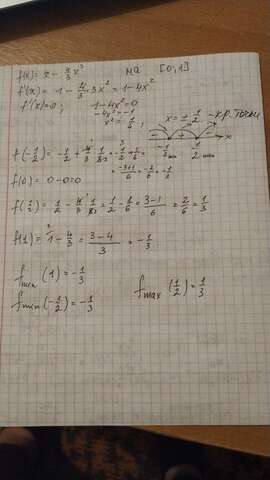 f(x) = x - 4/3 x³ на [0;1]
f'(x) = 1 - 4/3 · 3x² = 1 - 4x²
f'(x) = 0; 1 - 4x² = 0
-4x² = -1
x² = 1/4; x = ± 1/2 - кр. точки
- + - x
-1/2 min 1/2 max
f(-1/2) = -1/2 + 4/3 · 1/8 = -1/2 + 1/6 =
= (-3+1)/6 = -2/6 = -1/3
f(0) = 0 - 0 = 0
f(1/2) = 1/2 - 4/3 · 1/8 = 1/2 - 1/6 = (3-1)/6 = 2/6 = 1/3
f(1) = 1 - 4/3 = (3-4)/3 = -1/3
f min (1) = -1/3
f max (1/2) = 1/3
f min (-1/2) = -1/3